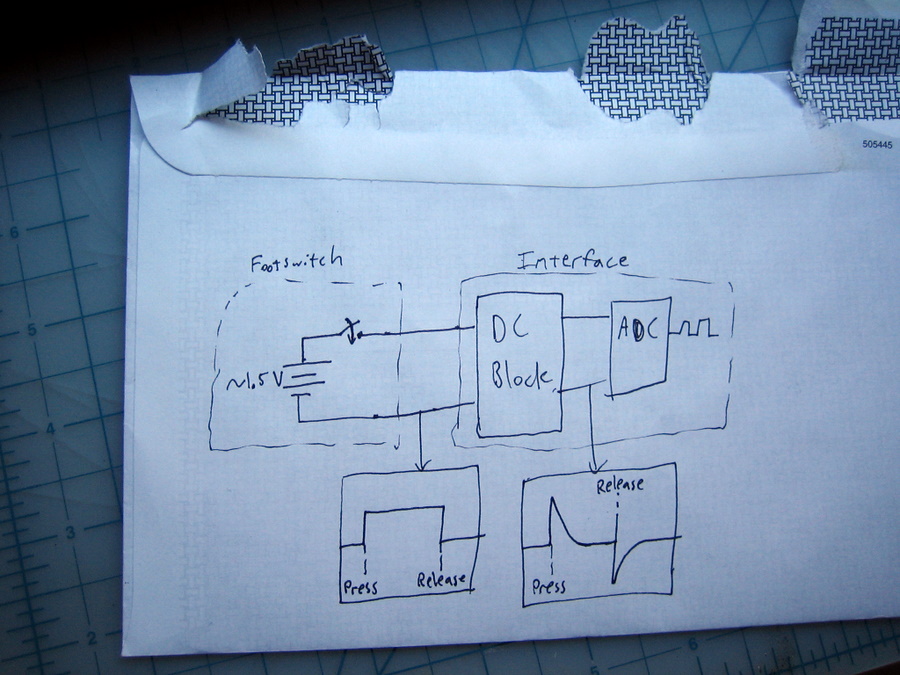 505445
Footswitch
Interface
DC
Block
ADC
~1.5V
Press
Release
Release
Press
6
5
4
3
2
5
6